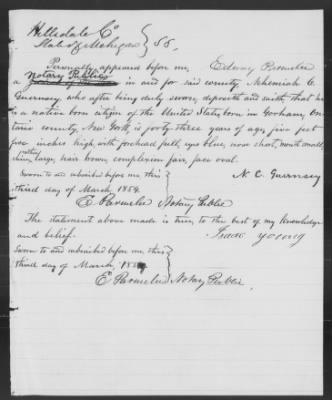 Hillsdale Co }
State of Michigan } SS.
Personally appeared before me, Edowy Parmelee
a Notary Public in and for said county Nehemiah C.
Guernsey who after being duly sworn, deposeth and saith, that he
is a native born citizen of the United States, born in Gorham, On-
tario county, New York, is forty three years of age, five feet
five inches high, with forehead full, eyes blue, nose short, mouth small,
chin, large, hair brown, complexion fair, face oval.
Sworn to and subscribed before me this }
third day of March, 1859. }
N. C. Guernsey
E Parmelee Notary Public
The statement above made is true, to the best of my knowledge
and belief.
Isaac Young
Sworn to and subscribed before me this }
third day of March, 1859. }
E Parmelee Notary Public.